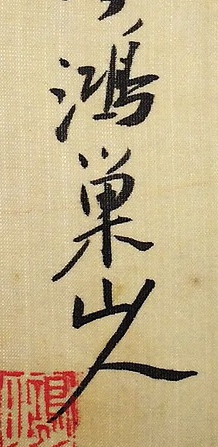 鴻巢山人